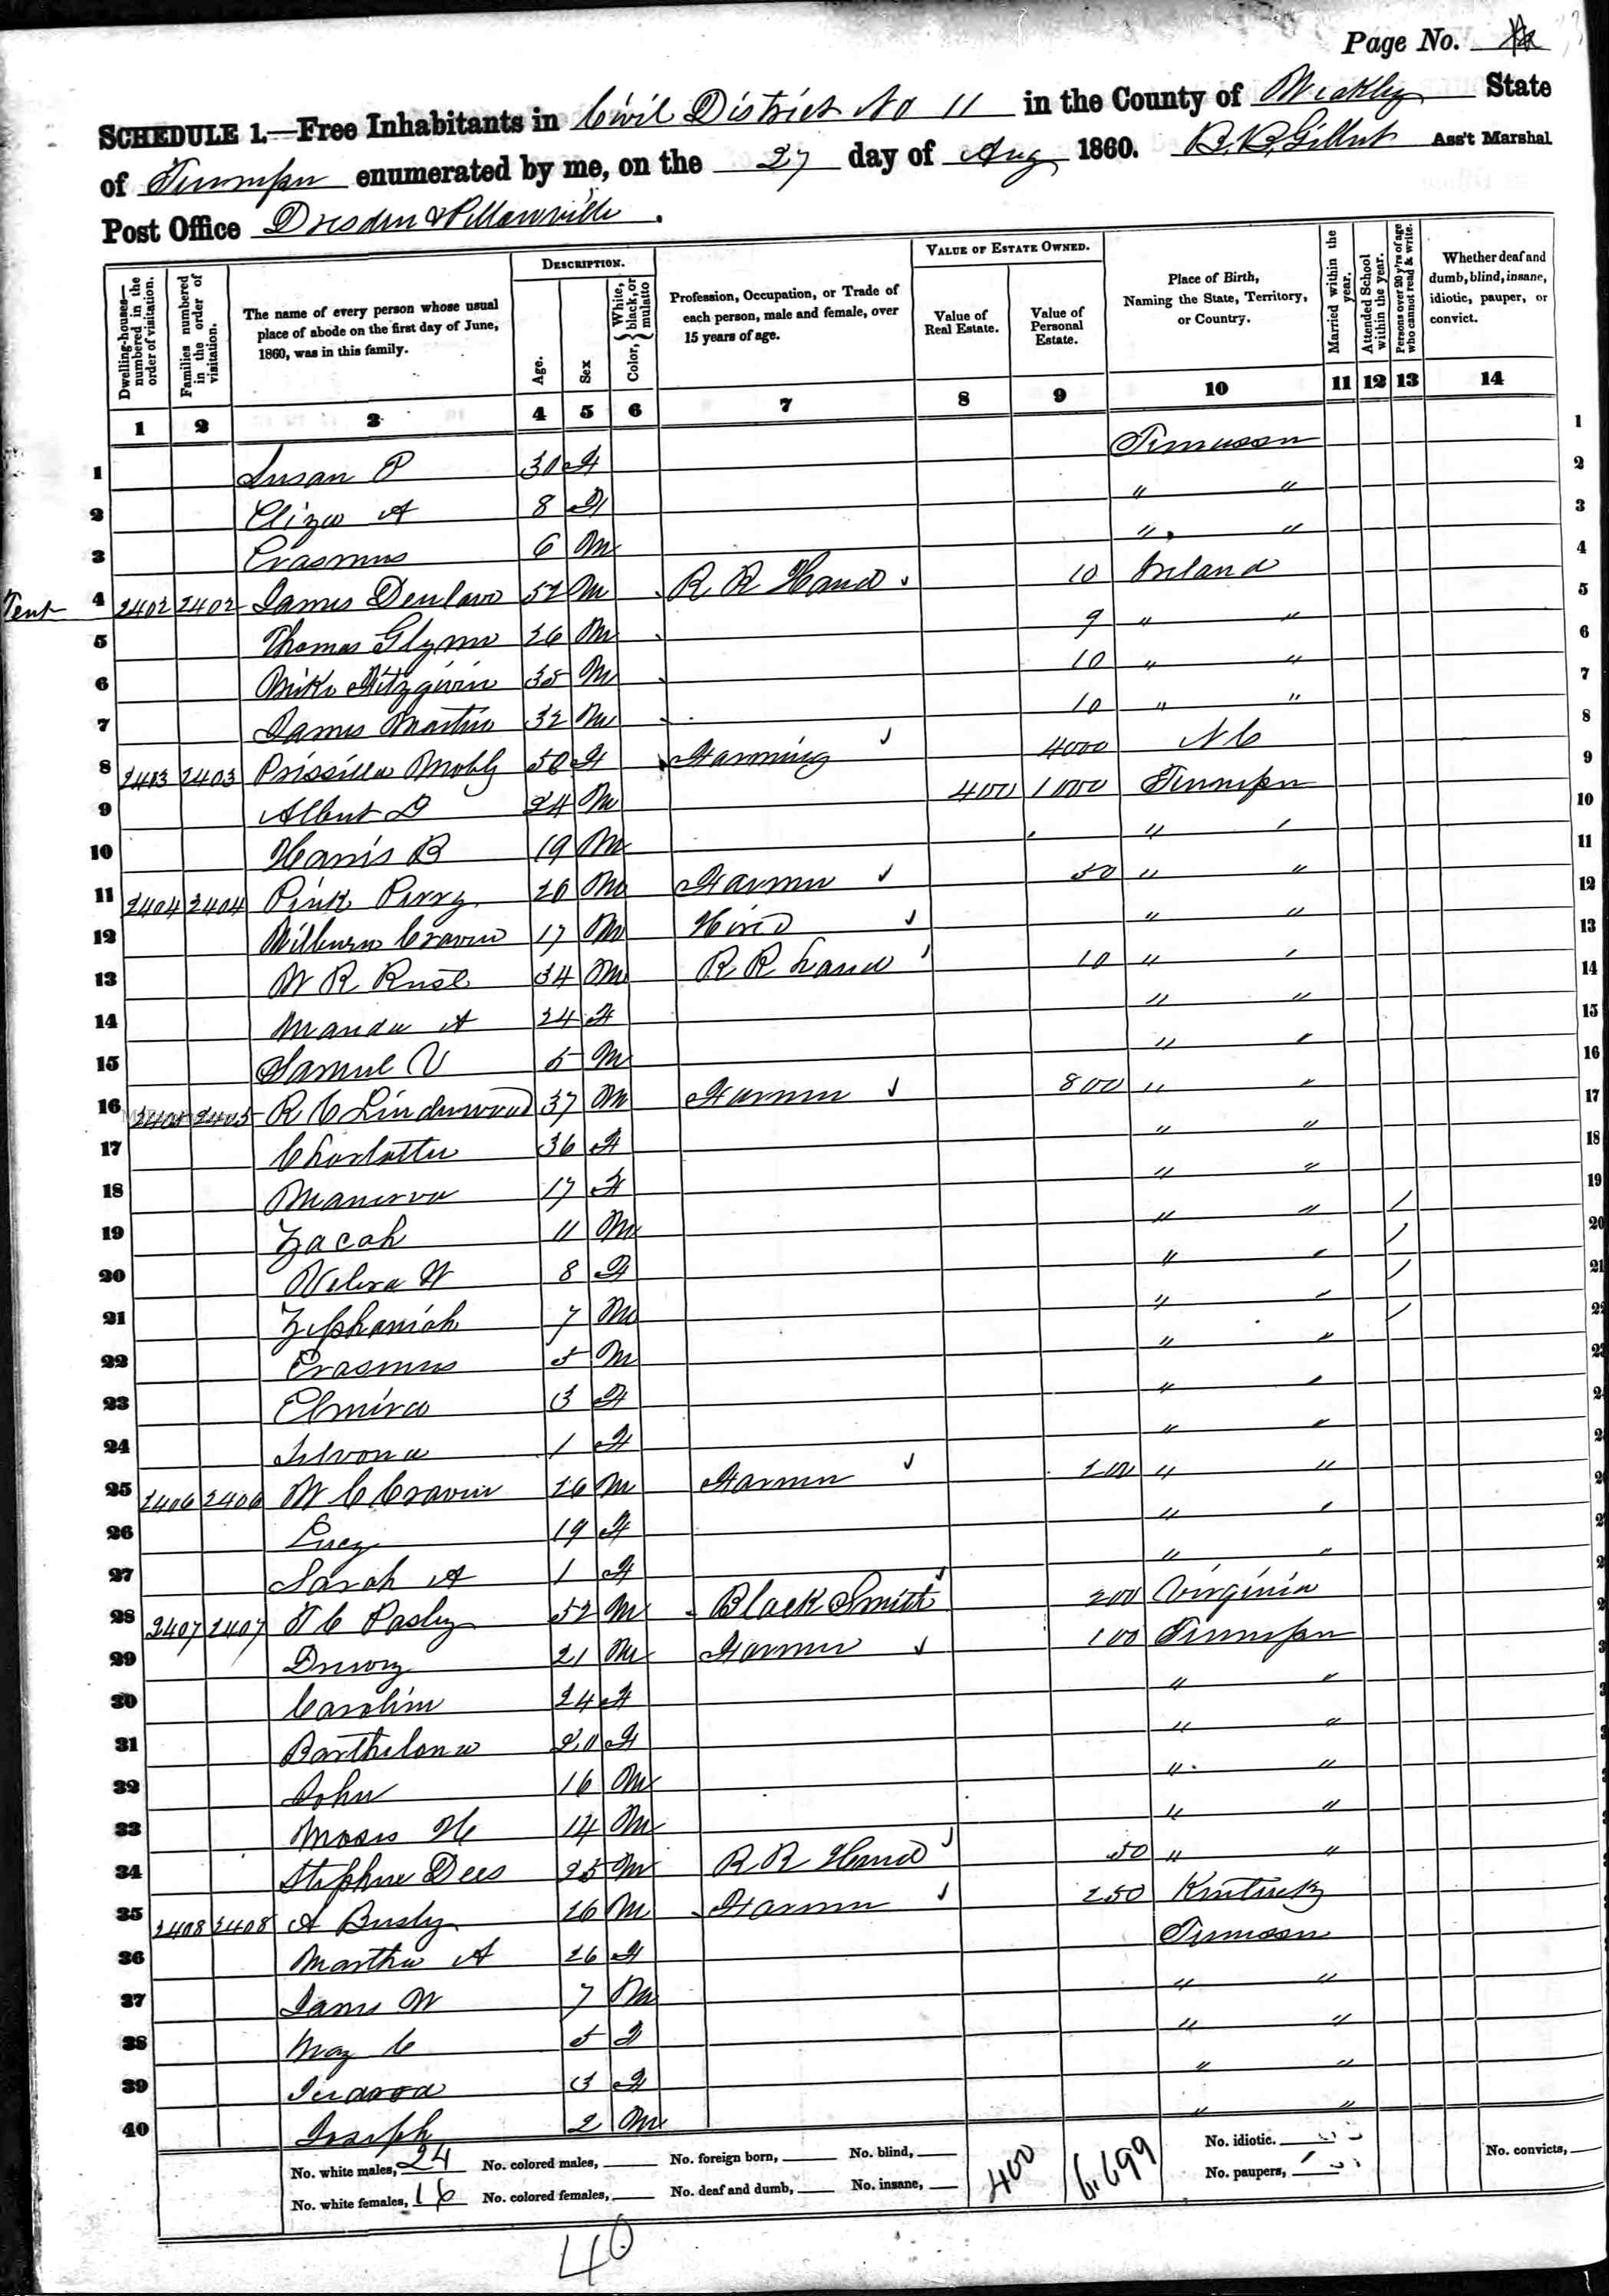 Page No.
SCHEDULE 1.—Free Inhabitants in Civil District No 11 in the County of Weakley State
of Tennessee enumerated by me, on the 27 day of Aug 1860. Ass't Marshal
Post Office Dresden &
Dwelling-houses—numbered in the order of visitation.
Families numbered in the order of visitation.
The name of every person whose usual place of abode on the first day of June, 1860, was in this family.
DESCRIPTION.
Age.
Sex
Color, } White, black, or mulatto
Profession, Occupation, or Trade of each person, male and female, over 15 years of age.
VALUE OF ESTATE OWNED.
Value of Real Estate.
Value of Personal Estate.
Place of Birth, Naming the State, Territory, or Country.
Married within the year.
Attended School within the year.
Persons over 20 y'rs of age who cannot read & write.
Whether deaf and dumb, blind, insane, idiotic, pauper, or convict.
1 2 3 4 5 6 7 8 9 10 11 12 13 14
1 Susan P 30 F Tennessee 1
2 Eliza A 8 F " " 2
3 Erasmus 6 M " " 3
Tent 4 2402 2402 James 52 M R R Hand 10 Ireland 4
5 Thomas Glynn 26 M 9 " " 5
6 Mike 35 M 10 " " 6
7 James Martin 32 M 10 " " 7
8 2403 2403 Prissilla Mobly F Farming 4000 N C 8
9 Albert D 24 M 400 1000 Tennessee 9
10 Harris B 19 M " " 10
11 2404 2404 Pink Perry 26 M Farmer 50 " " 11
12 Wilburn Craven 17 M Hired " " 12
13 W R 34 M R R hand 10 " " 13
14 Manda A 24 F " " 14
15 Samuel V 5 M " " 15
16 2405 2405 R C Linderwood 37 M Farmer 800 " " 16
17 Charlotte 36 F " " 17
18 Manerva 17 F " " 18
19 Zacah 11 M " " / 19
20 8 F " " / 20
21 Zephaniah 7 M " " / 21
22 Erasmus 5 M " " /
23 Elmira 3 F " "
24 1 F " "
25 2406 2406 W C Craven 26 M Farmer 200 " "
26 Lucy 19 F " "
27 Sarah A 1 F " "
28 2407 2407 T C Pasley 52 M Black Smith 200 Virginia
29 Drury 21 M Farmer 100 Tennessee
30 Caroline 24 F " "
31 20 F " "
32 John 16 M " "
33 Moses H 14 M " "
34 Stephen Dees 25 M R R Hand 50 " "
35 2408 2408 A Busby 26 M Farmer 250 Kentucky
36 Martha A 26 F Tennessee
37 James W 7 M " "
38 Mary C 5 F " "
39 3 F " "
40 Joseph 2 M " "
No. white males, 24 No. colored males, No. foreign born, No. blind, 400 6,699 No. idiotic. No. convicts,
No. white females, 16 No. colored females, No. deaf and dumb, No. insane, No. paupers,
40